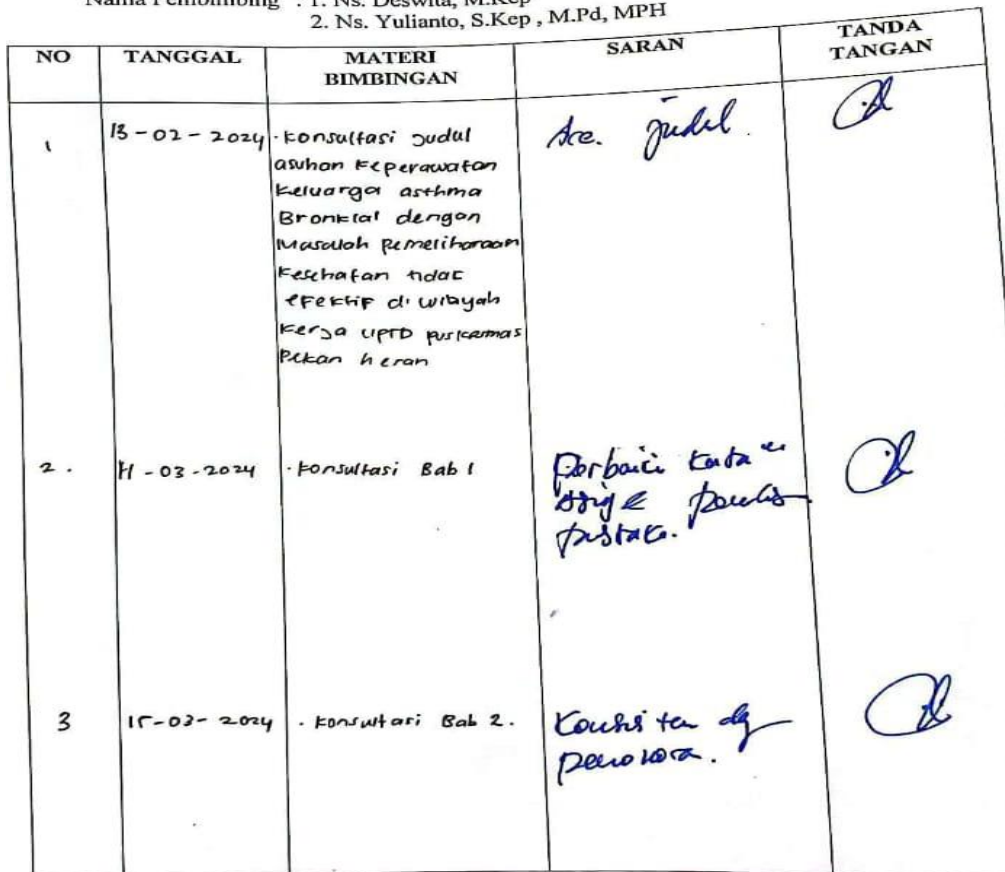 Nama Pembimbing : 1. Ns. Deswita, M.Kep
2. Ns. Yulianto, S.Kep , M.Pd, MPH
NO TANGGAL MATERI BIMBINGAN SARAN TANDA TANGAN
1 13-02-2024 . Konsultasi Judul
asuhan Keperawatan
Keluarga asthma
Bronkial dengan
Masalah Pemeliharaan
Kesehatan tidak
efektif di wilayah
Kerja UPTD puskesmas
Pekan heran
Acc. judul.
2. 11-03-2024 . Konsultasi Bab 1
Perbaiki kata"
pustaka.
3 15-03-2024 . Konsultasi Bab 2.
Konsisten dg